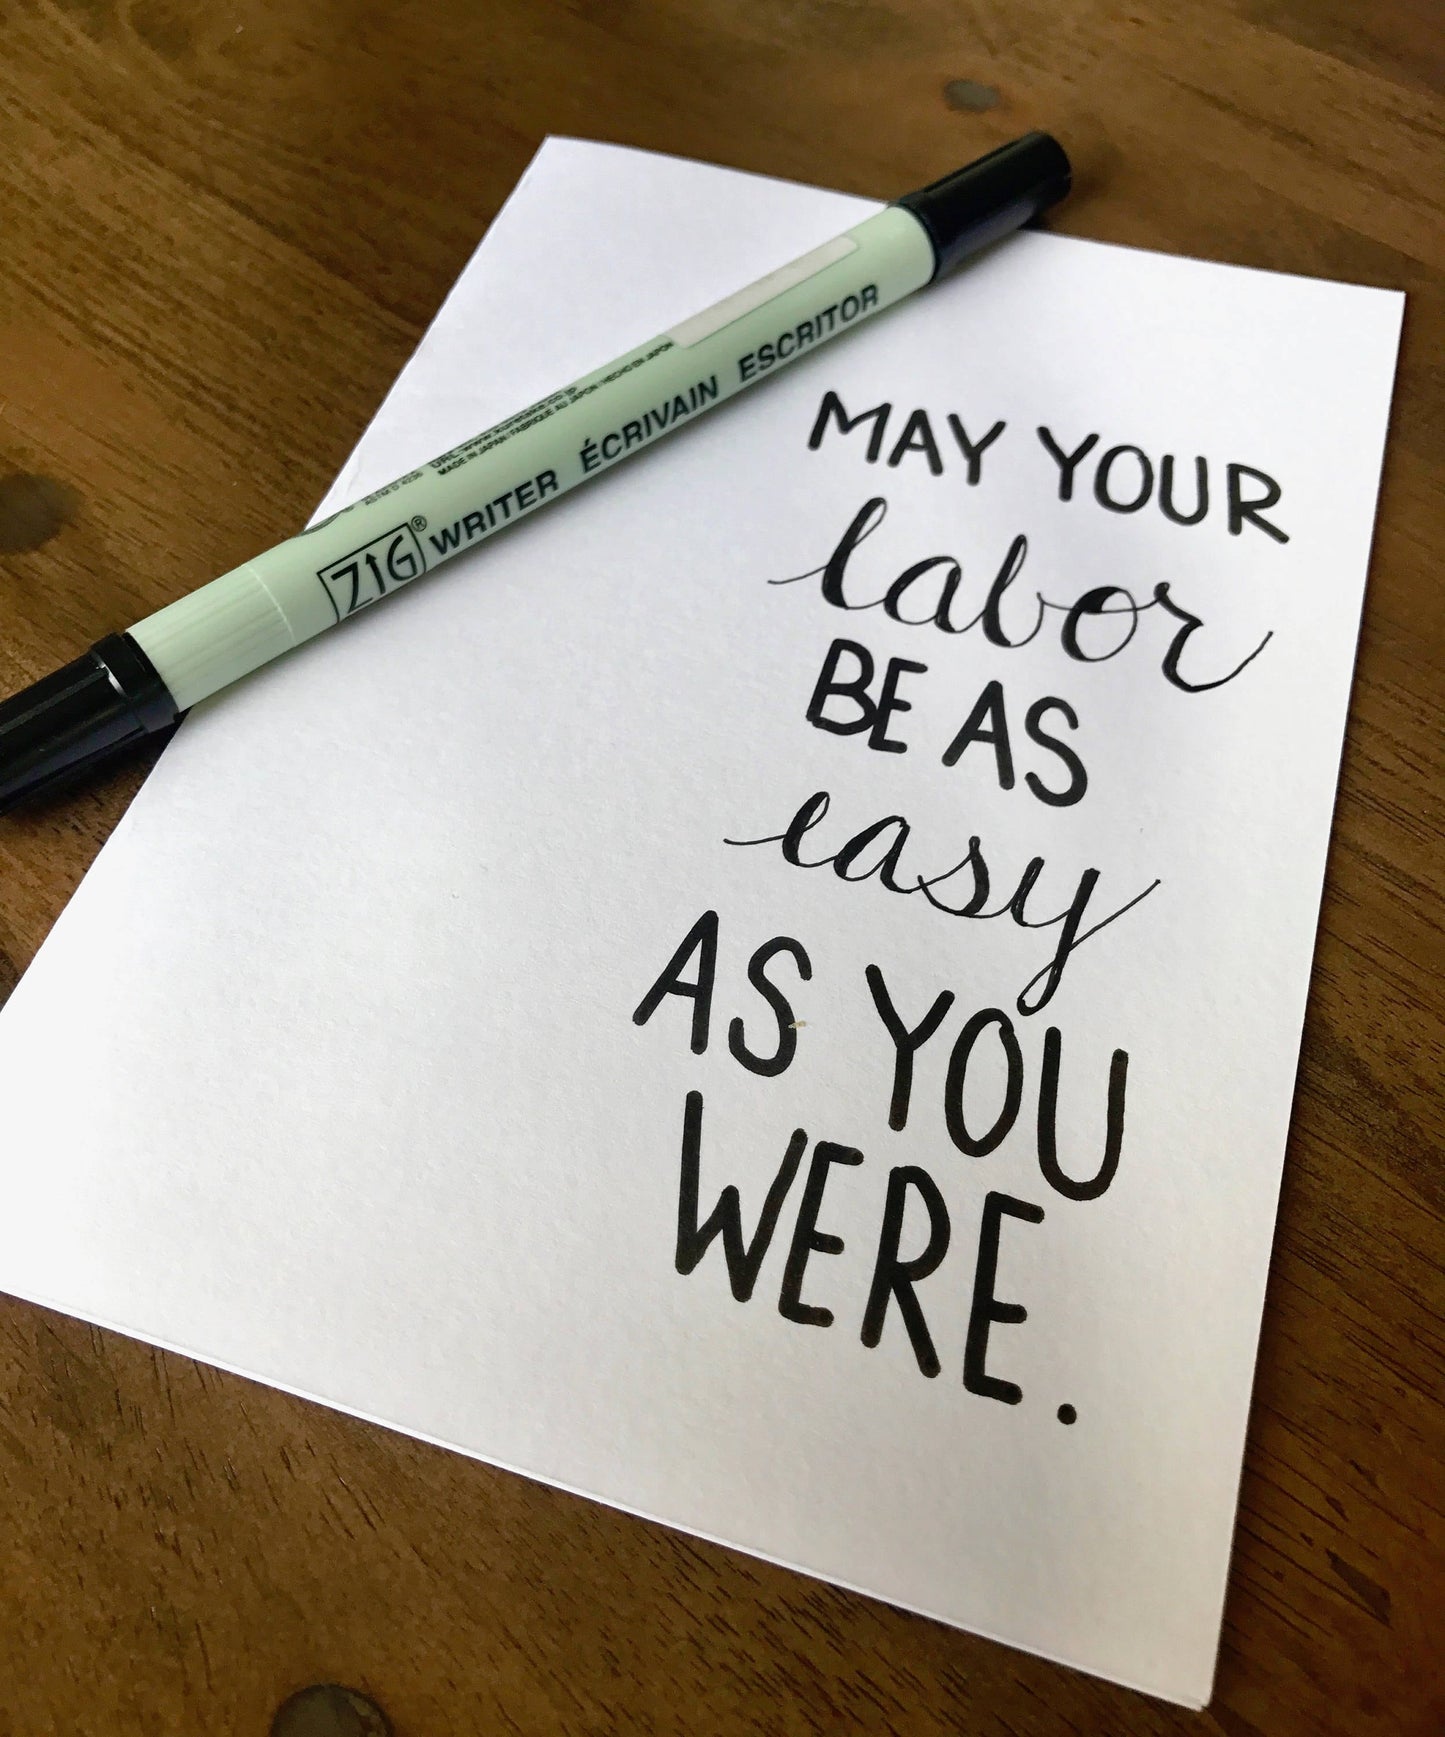 URL:www.kuretake.co.jp
MADE IN JAPAN / FABRIQUE AU JAPON / HECHO EN JAPON
ZIG® WRITER ÉCRIVAIN ESCRITOR
MAY YOUR
labor
BE AS
easy
AS YOU
WERE.